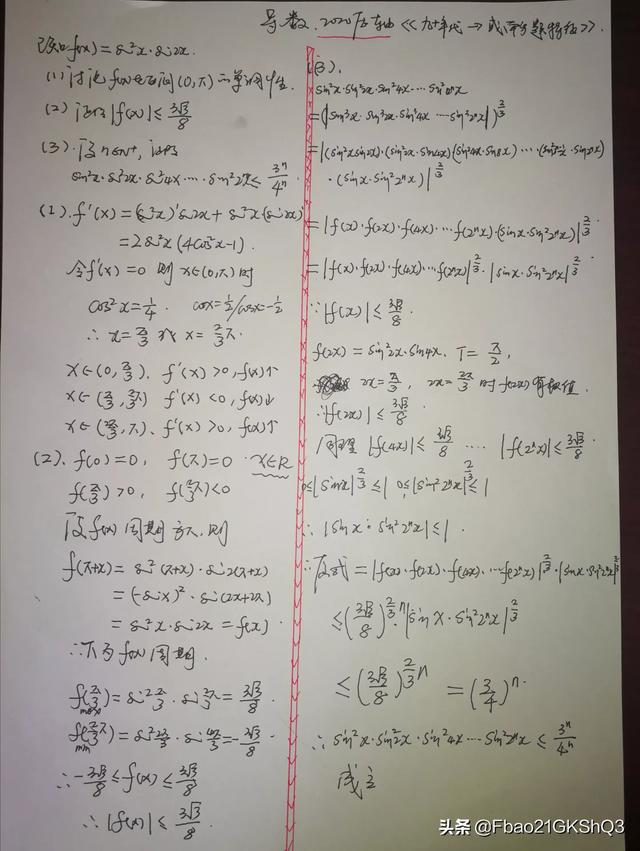 导数. 2020
已知f(x)=sin²x·sin2x.
(1)讨论f(x)在区间(0,π)的单调性.
(2)证明|f(x)|≤3√3/8
(3).设n∈N*,证明
sin²x·sin²2x·sin²4x·…·sin²2ⁿx≤3ⁿ/4ⁿ
(1).f'(x)=(sin²x)'sin2x+sin²x(sin2x)'
=2sin²x(4cos²x-1).
令f'(x)=0 则x∈(0,π)时
cos²x=1/4. cosx=1/2/cosx=-1/2
∴x=π/3或x=2/3π.
x∈(0,π/3).f'(x)>0,f(x)↑
x∈(π/3,2π/3)f'(x)<0,f(x)↓
x∈(2π/3,π).f'(x)>0,f(x)↑
(2).f(0)=0, f(π)=0 x∈R
f(π/3)>0, f(2/3π)<0
设f(x)周期为π.则
f(π+x)=sin²(π+x)·sin2(π+x)
=(-sinx)²·sin(2x+2π)
=sin²x·sin2x=f(x).
∴π为f(x)周期.
f(π/3)=sin²π/3·sin2π/3=3√3/8.
max
f(2/3π)=sin²2π/3·sin4π/3=-3√3/8.
min
∴-3√3/8≤f(x)≤3√3/8
∴|f(x)|≤3√3/8
(3).
sin²x·sin²2x·sin²4x…sin²2ⁿx
=(|sin³x·sin³2x·sin³4x…sin³2ⁿx|)^(2/3)
=|(sin²x·sin2x)·(sin²2x·sin4x)(sin²4x·sin8x)·…
·(sinx·sin²2ⁿx)|^(2/3)
=|f(x)·f(2x)·f(4x)…f(2ⁿx)·(sinx·sin²2ⁿx)|^(2/3)
=|f(x)·f(2x)·f(4x)…f(2ⁿx)|^(2/3)·|sinx·sin²2ⁿx|^(2/3)
∵|f(x)|≤3√3/8
f(2x)=sin²2x·sin4x. T=π/2,
2x=π/3, 2x=2π/3时f(2x)有极值.
∴|f(2x)|≤3√3/8
同理|f(4x)|≤3√3/8 … |f(2ⁿx)|≤3√3/8
0≤|sinx|^(2/3)≤1 0≤|sin²2ⁿx|^(2/3)≤1
∴|sinx·sin²2ⁿx|≤1
∴原式=|f(x)·f(2x)·f(4x)·…f(2ⁿx)|^(2/3)·|sinx·sin²2ⁿx|^(2/3)
≤(3√3/8)^(2/3 n)·|sinx·sin²2ⁿx|^(2/3)
≤(3√3/8)^(2/3 n)=(3/4)ⁿ.
∴sin²x·sin²2x·sin²4x…sin²2ⁿx≤3ⁿ/4ⁿ
成立
头条@Fbao21GKShQ3